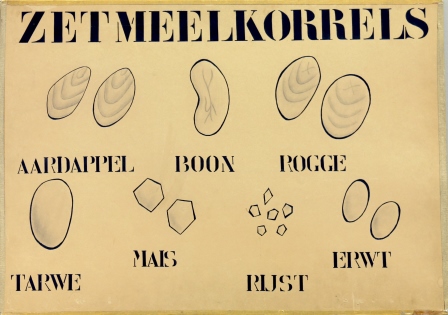 ZETMEELKORRELS
AARDAPPEL BOON ROGGE
TARWE MAIS RIJST ERWT